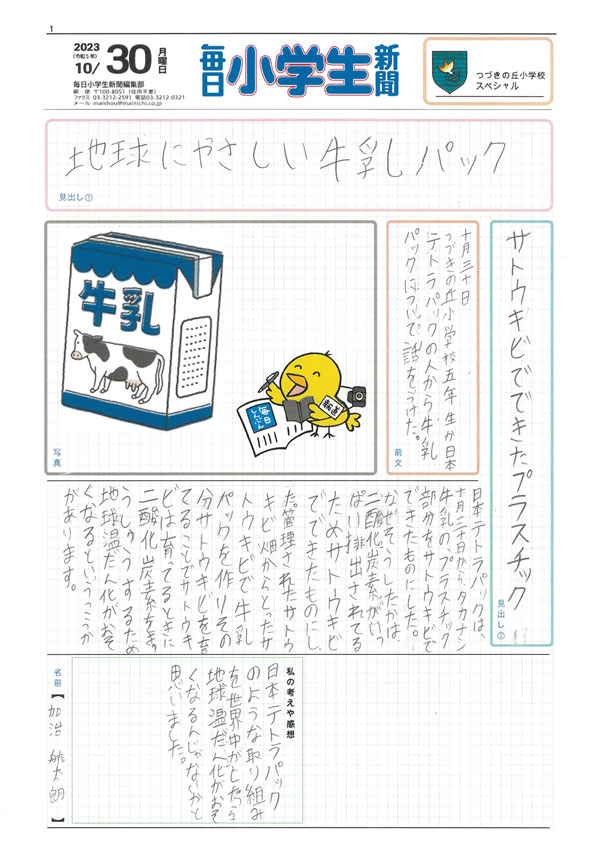 1
2023
(令和5年)
10/30 月曜日
毎日小学生新聞編集部
郵 便 〒100-8051 (住所不要)
ファクス 03-3212-2591 電話03-3212-0321
メール maishou@mainichi.co.jp
毎日小学生新聞
つづきの丘小学校
スペシャル
地球にやさしい牛乳パック
見出し①
サトウキビでできたプラスチック
見出し②
十月三十日
つづきの丘小学校五年生が日本
テトラパックの人から牛乳
パックについて話をうけた。
前文
牛乳
毎日
しんぶん
報道
写真
日本テトラパックは、
十月三十日からタカナシ
牛乳の、プラスチック
部分をサトウキビで
できたものにした。
なぜそうしたかは、
二酸化炭素がいっ
ぱい排出されてる
ためサトウキビ
でできたものにし
た。管理されたサトウ
キビ畑からとったサ
トウキビで牛乳
パックを作りその
分サトウキビを育
てることでサトウキ
ビは育ってるときに
二酸化炭素をきゅ
うしゅうするため
地球温だん化がおそ
くなるということが
があります。
私の考えや感想
日本テトラパック
のような取り組み
を世界中がしたら
地球温だん化がおそ
くなるんじゃないかと
思いました。
名前【加治 航太朗】